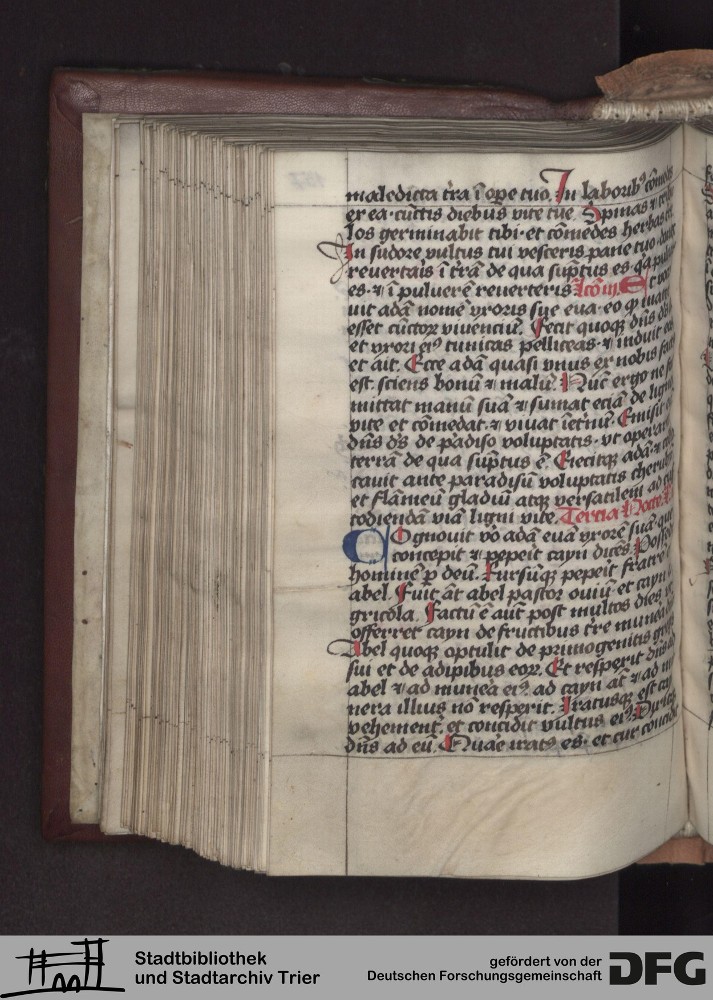 maledicta tr̄a ī oꝑe tuo. In laborib⁹ cōmed
ex ea cūctis diebus vite tue. Spinas ⁊ tribu
los germinabit tibi· et cōmedes herbas
In sudore vultus tui vesceris pane tuo donec
reuertar̄s ī tr̄ā de qua sūptus es· q̄a pul
es· ⁊ ī puluerē reuerteris
uit adā nomē vxoris sue eua· eo ꝙ mater
esset cūctoꝝ viuenciū. Fecit quoqꝫ dn̄s ds̄
et vxori ei⁹ tunicas pelliceas· ⁊ induit eos
et ait. Ecce adā quasi vnus ex nobis factus
est· sciens bonū ⁊ malū. Nūc ergo ne for
mittat manū suā ⁊ sumat eciā de ligno
vite et cōmedat· ⁊ viuat ī et̄nū. Emisit
dn̄s ds̄ de padiso voluptatis· vt operar
terrā de qua sūptus ē. Eiecitqꝫ adā· ⁊
cauit ante paradisū voluptatis cherub
et flāmeū gladiū atqꝫ versatilem ad cu
todiendā viā ligni vite. Tercia
Cognouit vo adā euā vxorē suā· que
concepit ⁊ pepeit cayn dicēs. Possed
hominē p̱ deū. Rursūqꝫ pepeit fratrē
abel. Fuit āt abel pastor ouiū· et cayn
gricola. Factū ē aūt post multos dies vt
offerret cayn de fructibus tr̄e
Abel quoqꝫ optulit de primogenitis gregis
sui et de adipibus eoꝝ. Et respexit dn̄s ad
abel ⁊ ad munea ei⁹· ad cayn āt ⁊ ad mu
nera illius nō respexit. Iratusqꝫ est cayn
vehement᷑· et concidit vultus ei⁹. Dixitqꝫ
dn̄s ad eū. Quare irat⁹ es· et cur concidit
Stadtbibliothek
und Stadtarchiv Trier
gefördert von der
Deutschen Forschungsgemeinschaft
DFG